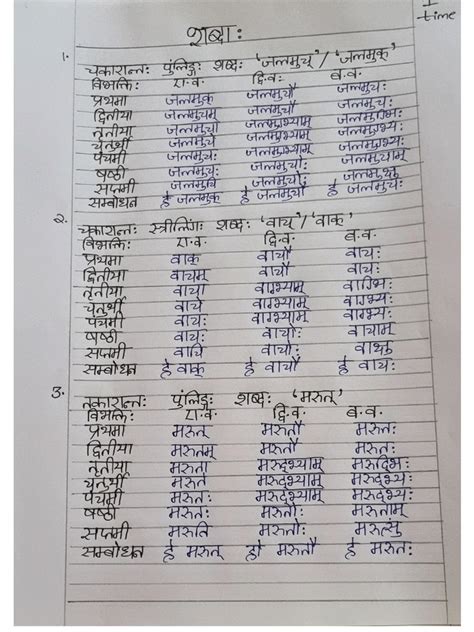 I
time
शब्दाः
१. चकारान्तः पुंलिङ्गः शब्दः 'जलमुच्' / 'जलमुक्'
विभक्तिः ए.व. द्वि.वः ब.व.
प्रथमा जलमुक् जलमुचौ जलमुचः
द्वितीया जलमुचम् जलमुचौ जलमुचः
तृतीया जलमुचा जलमुग्भ्याम् जलमुग्भिः
चतुर्थी जलमुचे जलमुग्भ्याम् जलमुग्भ्यः
पंचमी जलमुचः जलमुग्भ्याम् जलमुग्भ्यः
षष्ठी जलमुचः जलमुचोः जलमुचाम्
सप्तमी जलमुचि जलमुचोः जलमुक्षु
सम्बोधन हे जलमुक् हे जलमुचौ हे जलमुचः
२. चकारान्तः स्त्रीलिंगः शब्दः 'वाच्' / 'वाक्'
विभक्तिः ए.व. द्वि.व. ब.व.
प्रथमा वाक् वाचौ वाचः
द्वितीया वाचम् वाचौ वाचः
तृतीया वाचा वाग्भ्याम् वाग्भिः
चतुर्थी वाचे वाग्भ्याम् वाग्भ्यः
पंचमी वाचः वाग्भ्याम् वाग्भ्यः
षष्ठी वाचः वाचोः वाचाम्
सप्तमी वाचि वाचोः वाक्षु
सम्बोधन हे वाक् हे वाचौ हे वाचः
३. तकारान्तः पुंलिङ्गः शब्दः 'मरुत्'
विभक्तिः ए.व. द्वि.व. ब.व.
प्रथमा मरुत् मरुतौ मरुतः
द्वितीया मरुतम् मरुतौ मरुतः
तृतीया मरुता मरुद्भ्याम् मरुद्भिः
चतुर्थी मरुते मरुद्भ्याम् मरुद्भ्यः
पंचमी मरुतः मरुद्भ्याम् मरुद्भ्यः
षष्ठी मरुतः मरुतोः मरुताम्
सप्तमी मरुति मरुतोः मरुत्सु
सम्बोधन हे मरुत् हो मरुतौ हे मरुतः